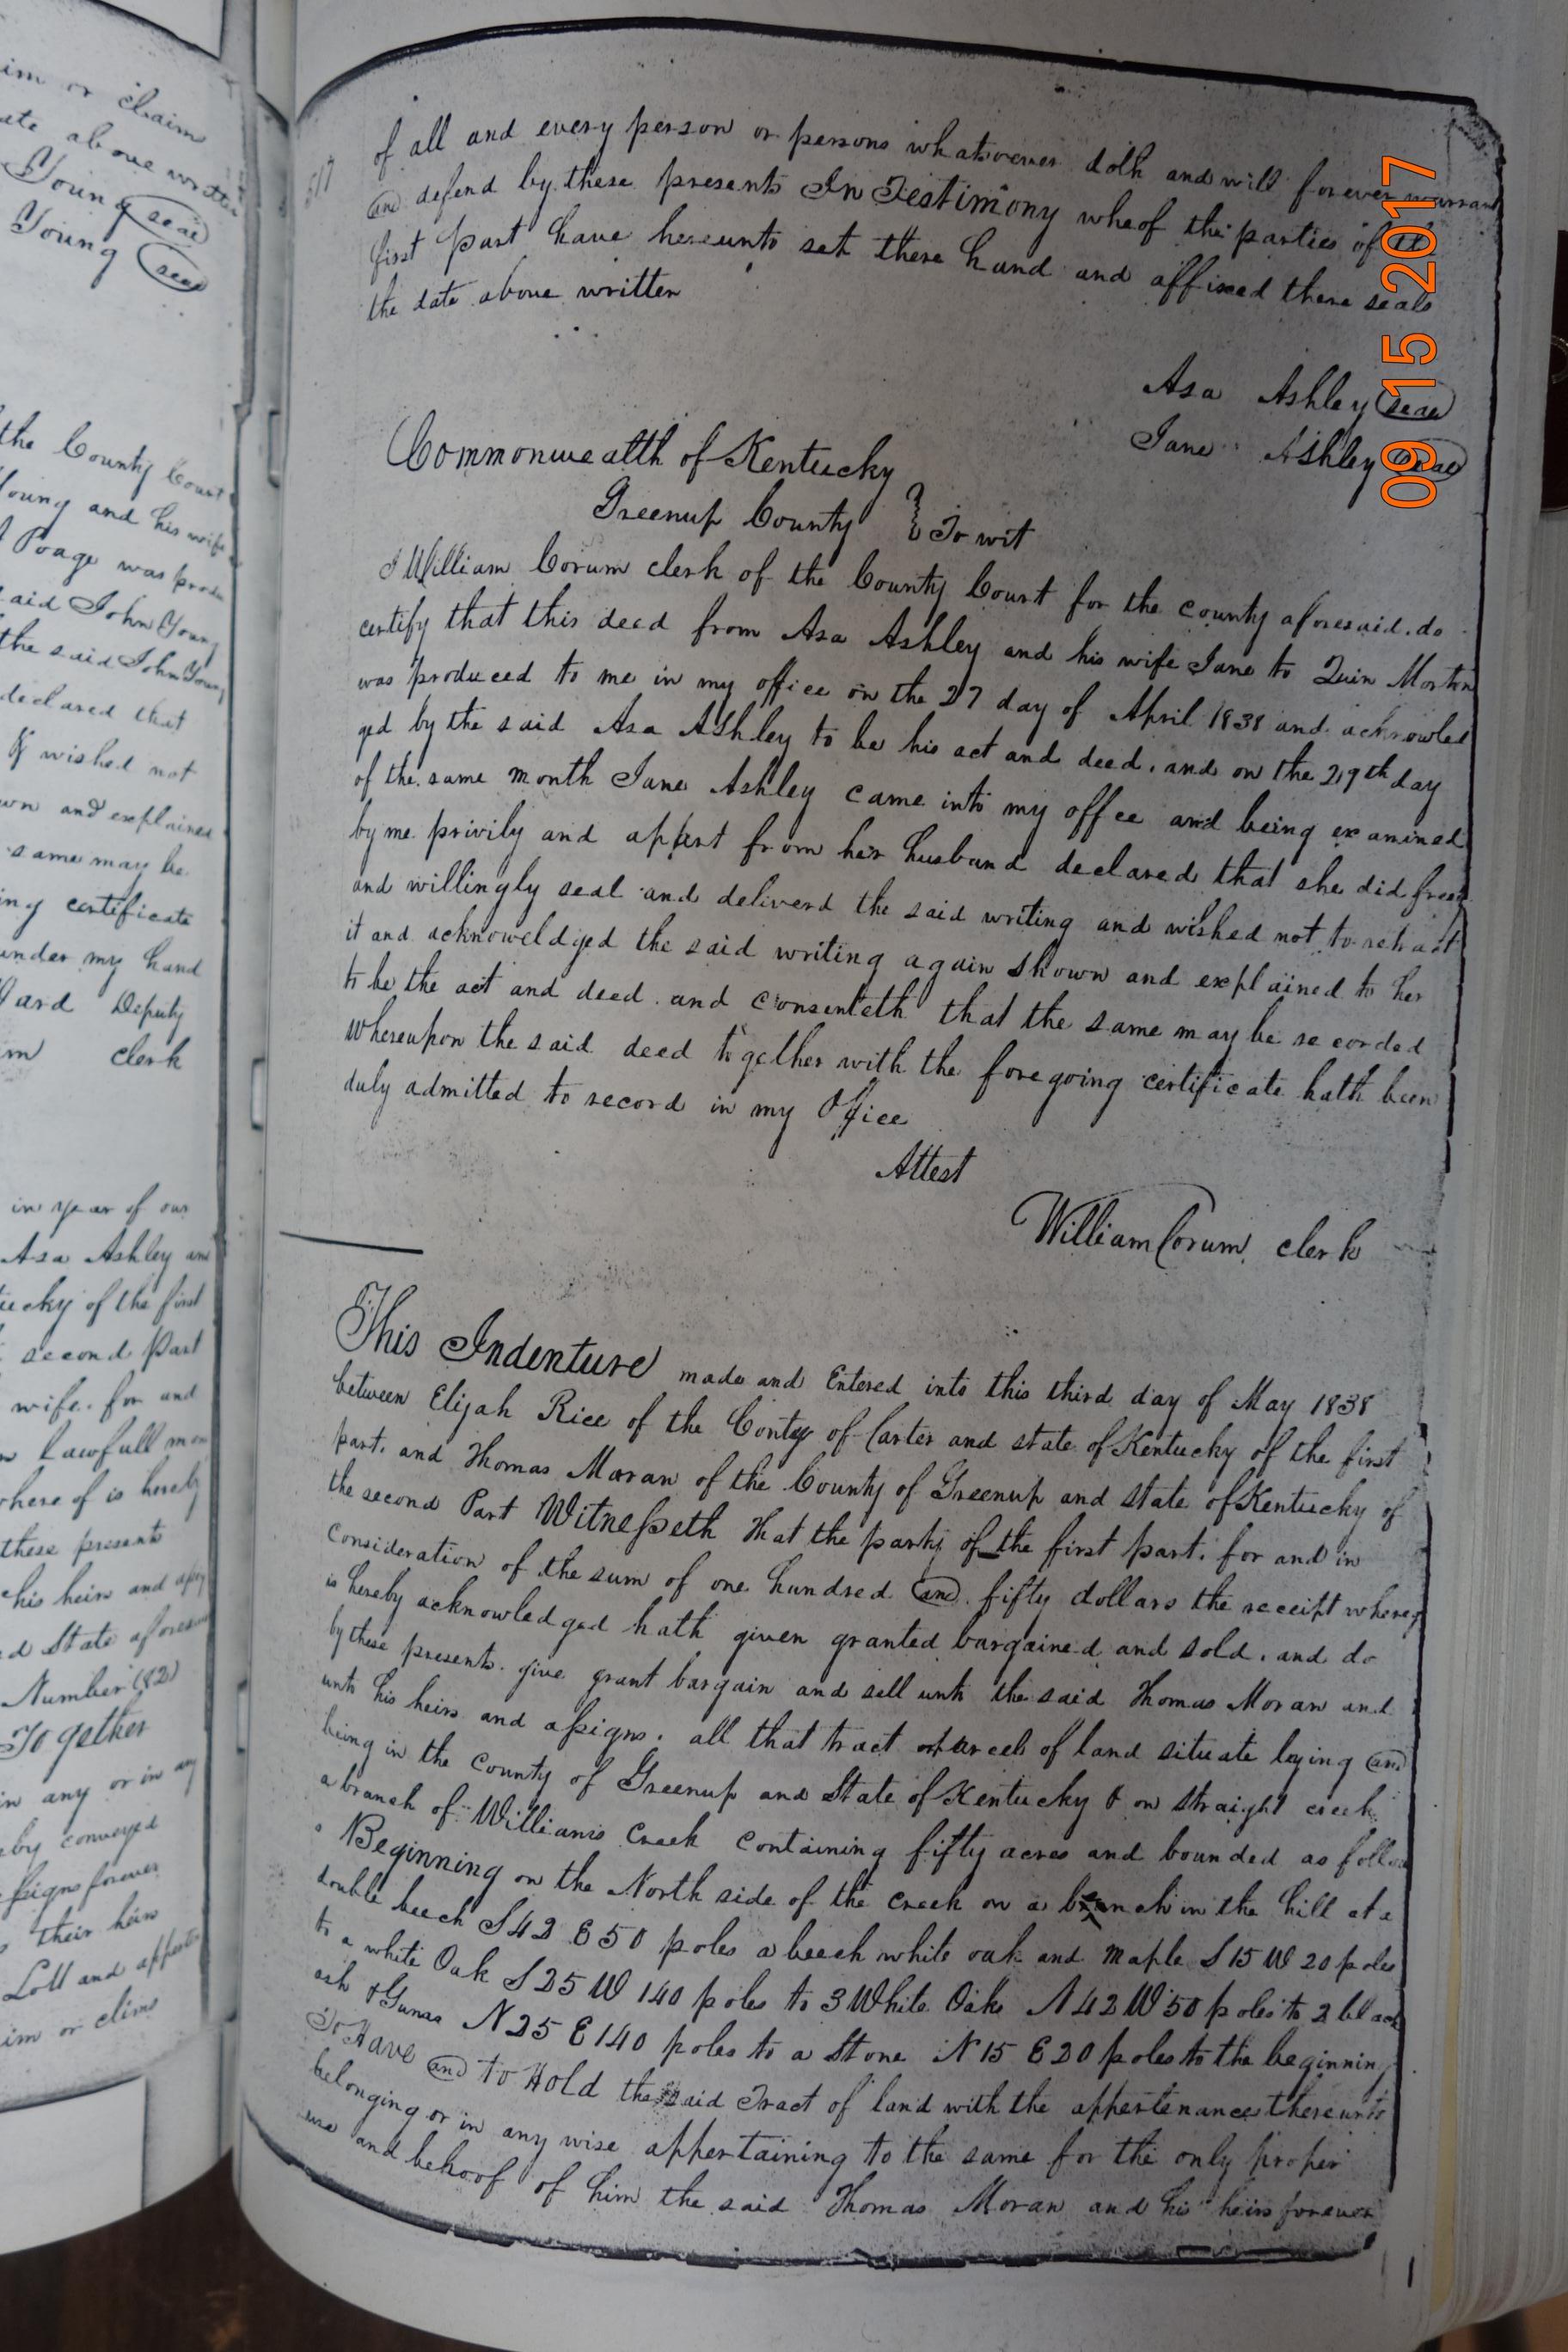 im or claim
ate above written
Young seal
Young seal
the County Court
Young and his wife
Poage was produ
said John Young
the said John Young
declared that
wished not
own and explained
same may be
ing certificate
under my hand
Ward Deputy
clerk
in year of our
Asa Ashley and
tucky of the first
second Part
wife for and
Lawfull mon
where of is hereby
these presents
his heirs and
d State aforesa
Number (82)
Together
in any or in any
eby conveyed
ssigns forever
their heirs
Lott and appert
im or clims
517
of all and every person or persons whatsoever doth and will forever warrant
and defend by these presents In Testimony wheof the parties of the
first part have hereunto set there hand and affixed there seals
the date above written
Asa Ashley seal
Jane Ashley seal
Commonwealth of Kentucky
Greenup County } To wit
I William Corum clerk of the County Court for the county aforesaid do
certify that this deed from Asa Ashley and his wife Jane to Quin Morton
was produced to me in my office on the 27 day of April 1838 and acknowled
ged by the said Asa Ashley to be his act and deed, and on the 29th day
of the same month Jane Ashley came into my offce and being examined
by me privily and appart from her husband declared that she did freely
and willingly seal and deliverd the said writing and wished not to retract
it and acknoweldged the said writing again shown and explained to her
to be the act and deed and consenteth that the same may be recorded
Whereupon the said deed together with the foregoing certificate hath been
duly admitted to record in my Office
Attest
William Corum clerk
This Indenture made and Entered into this third day of May 1838
between Elijah Rice of the Conty of Carter and state of Kentucky of the first
part. and Thomas Moran of the County of Greenup and state of Kentucky of
the second Part Witnesseth that the party of the first part, for and in
consideration of the sum of one hundred and fifty dollars the receipt whereof
is hereby acknowledged hath given granted bargained and sold, and do
by these presents give grant bargain and sell unto the said Thomas Moran and
unto his heirs and assigns, all that tract or parcel of land situate laying and
being in the County of Greenup and State of Kentucky & on straight creek
a branch of Williams Creek containing fifty acres and bounded as follow
Beginning on the North side of the creek on a bench in the hill at a
double beech S 42 E 50 poles a beech white oak and maple S 15 W 20 poles
to a white Oak S 25 W 140 poles to 3 White Oaks N 42 W 50 poles to 2 black
ash & Gums N 25 E 140 poles to a Stone N 15 E 20 poles to the beginning
To Have and to Hold the said Tract of land with the appertenances thereunto
belonging or in any wise appertaining to the same for the only proper
use and behoof of him the said Thomas Moran and his heirs forever
09 15 2017